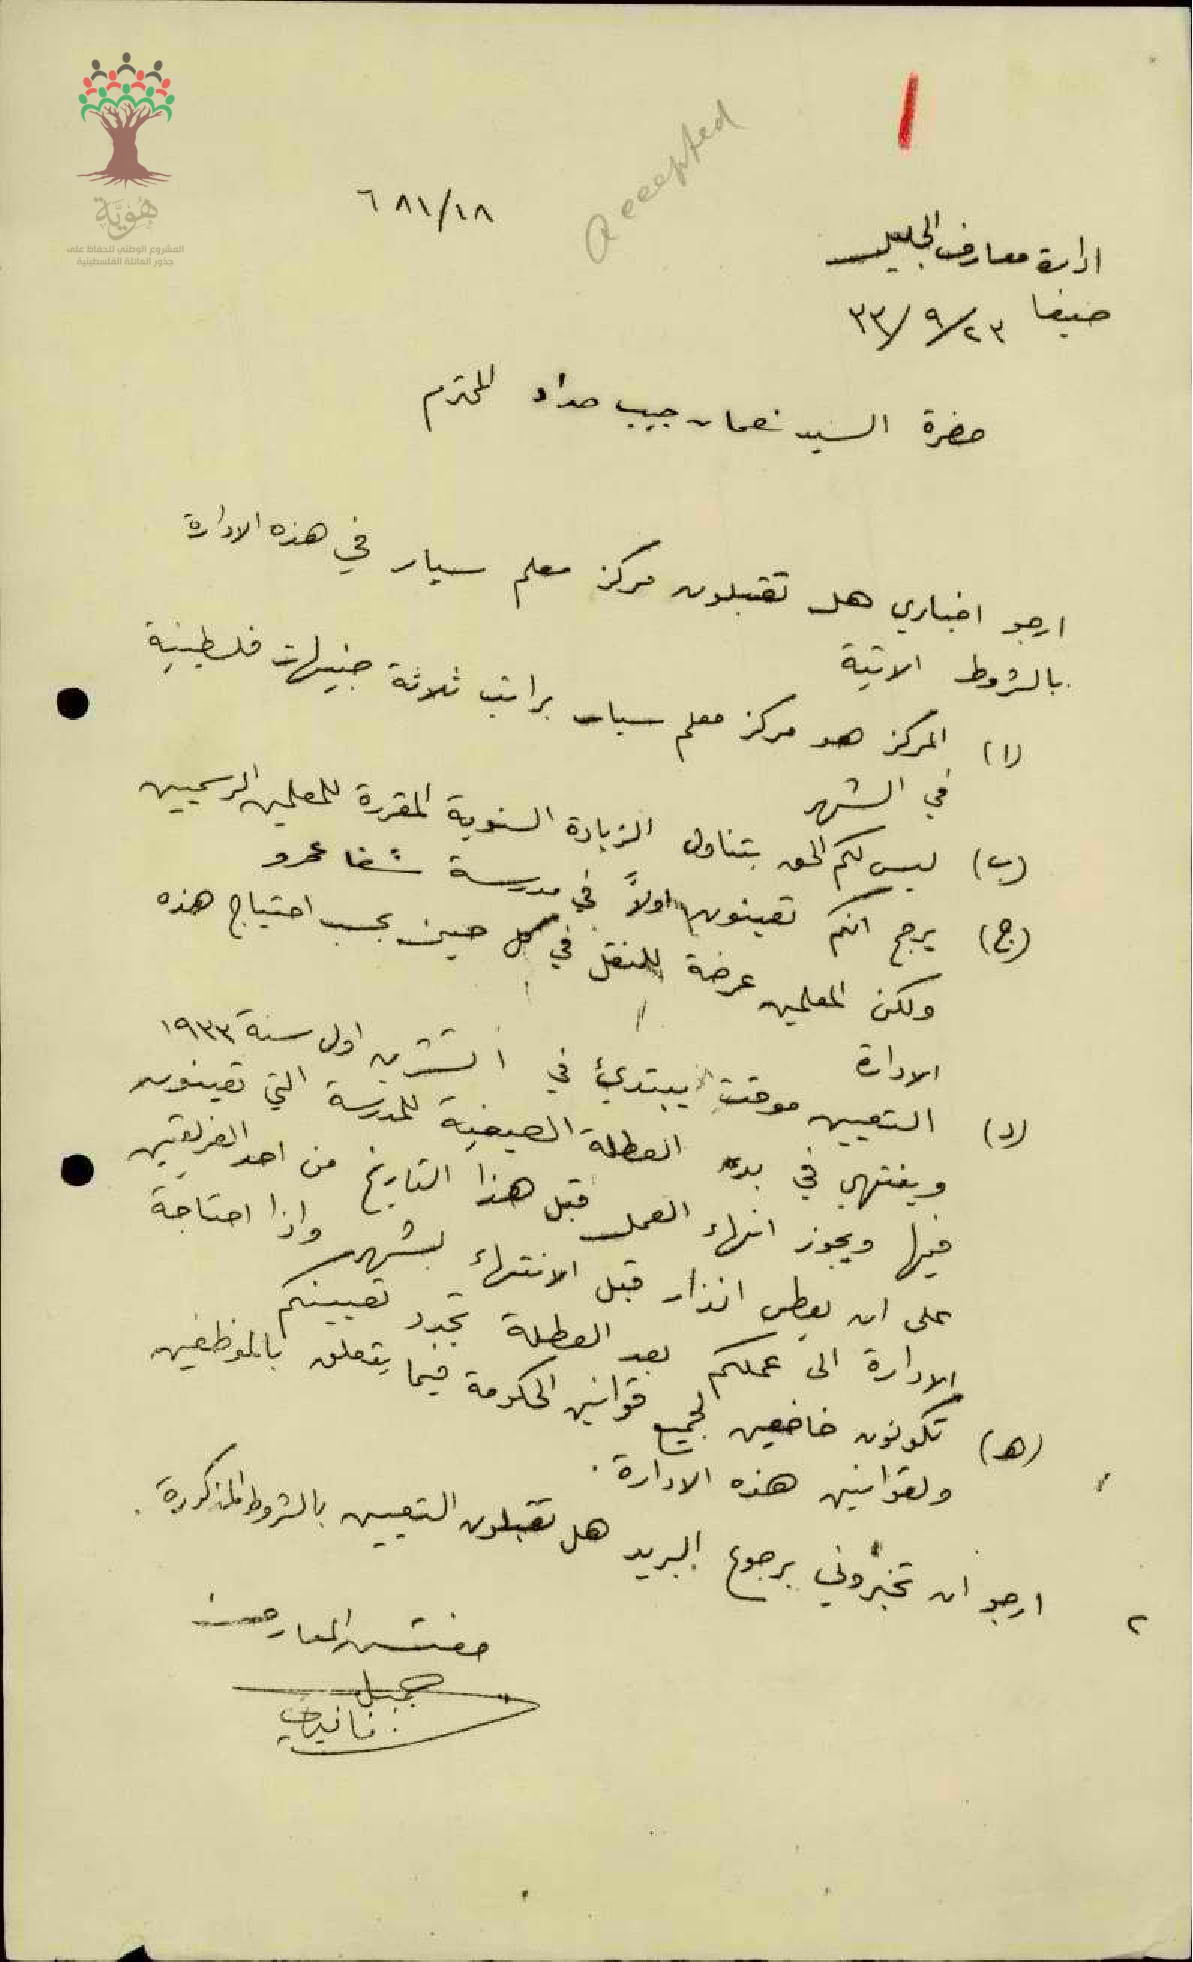 هُوِيَّة
المشروع الوطني للحفاظ على
جذور العائلة الفلسطينية
Accepted
٦٨١/١٨
ادارة معارف الجليل
حيفا ٢٣/٩/٣٣
حضرة السيد نعمان حبيب حداد المحترم
ارجو اخباري هل تقبلون مركز معلم سيار في هذه الادارة
بالشروط الاتية
(ا) المركز هو مركز معلم سيار براتب ثلاثة جنيهات فلسطينية
في الشهر
(ب) ليس لكم الحق بتناول الزيادة السنوية المقررة للمعلمين الرسميين
(ج) يرجح انكم تعينون اولاً في مدرسة شفا عمرو
ولكن المعلمين عرضة للنقل في كل حين بحسب احتياج هذه
الادارة
(د) التعيين موقت يبتدئ في ١ تشرين اول سنة ١٩٣٣
وينتهي في بدء العطلة الصيفية للمدرسة التي تعينون
فيها ويجوز انهاء العمل قبل هذا التاريخ من احد الفريقين
على ان يعطى انذار قبل الانتهاء بشهر واذا احتاجت
الادارة الى عملكم بعد العطلة تجدد تعيينكم
(ه) تكونون خاضعين لجميع قوانين الحكومة فيما يتعلق بالموظفين
ولقوانين هذه الادارة.
٢ ارجو ان تخبروني برجوع البريد هل تقبلون التعيين بالشروط المذكورة.
مفتش المعارف
جميل